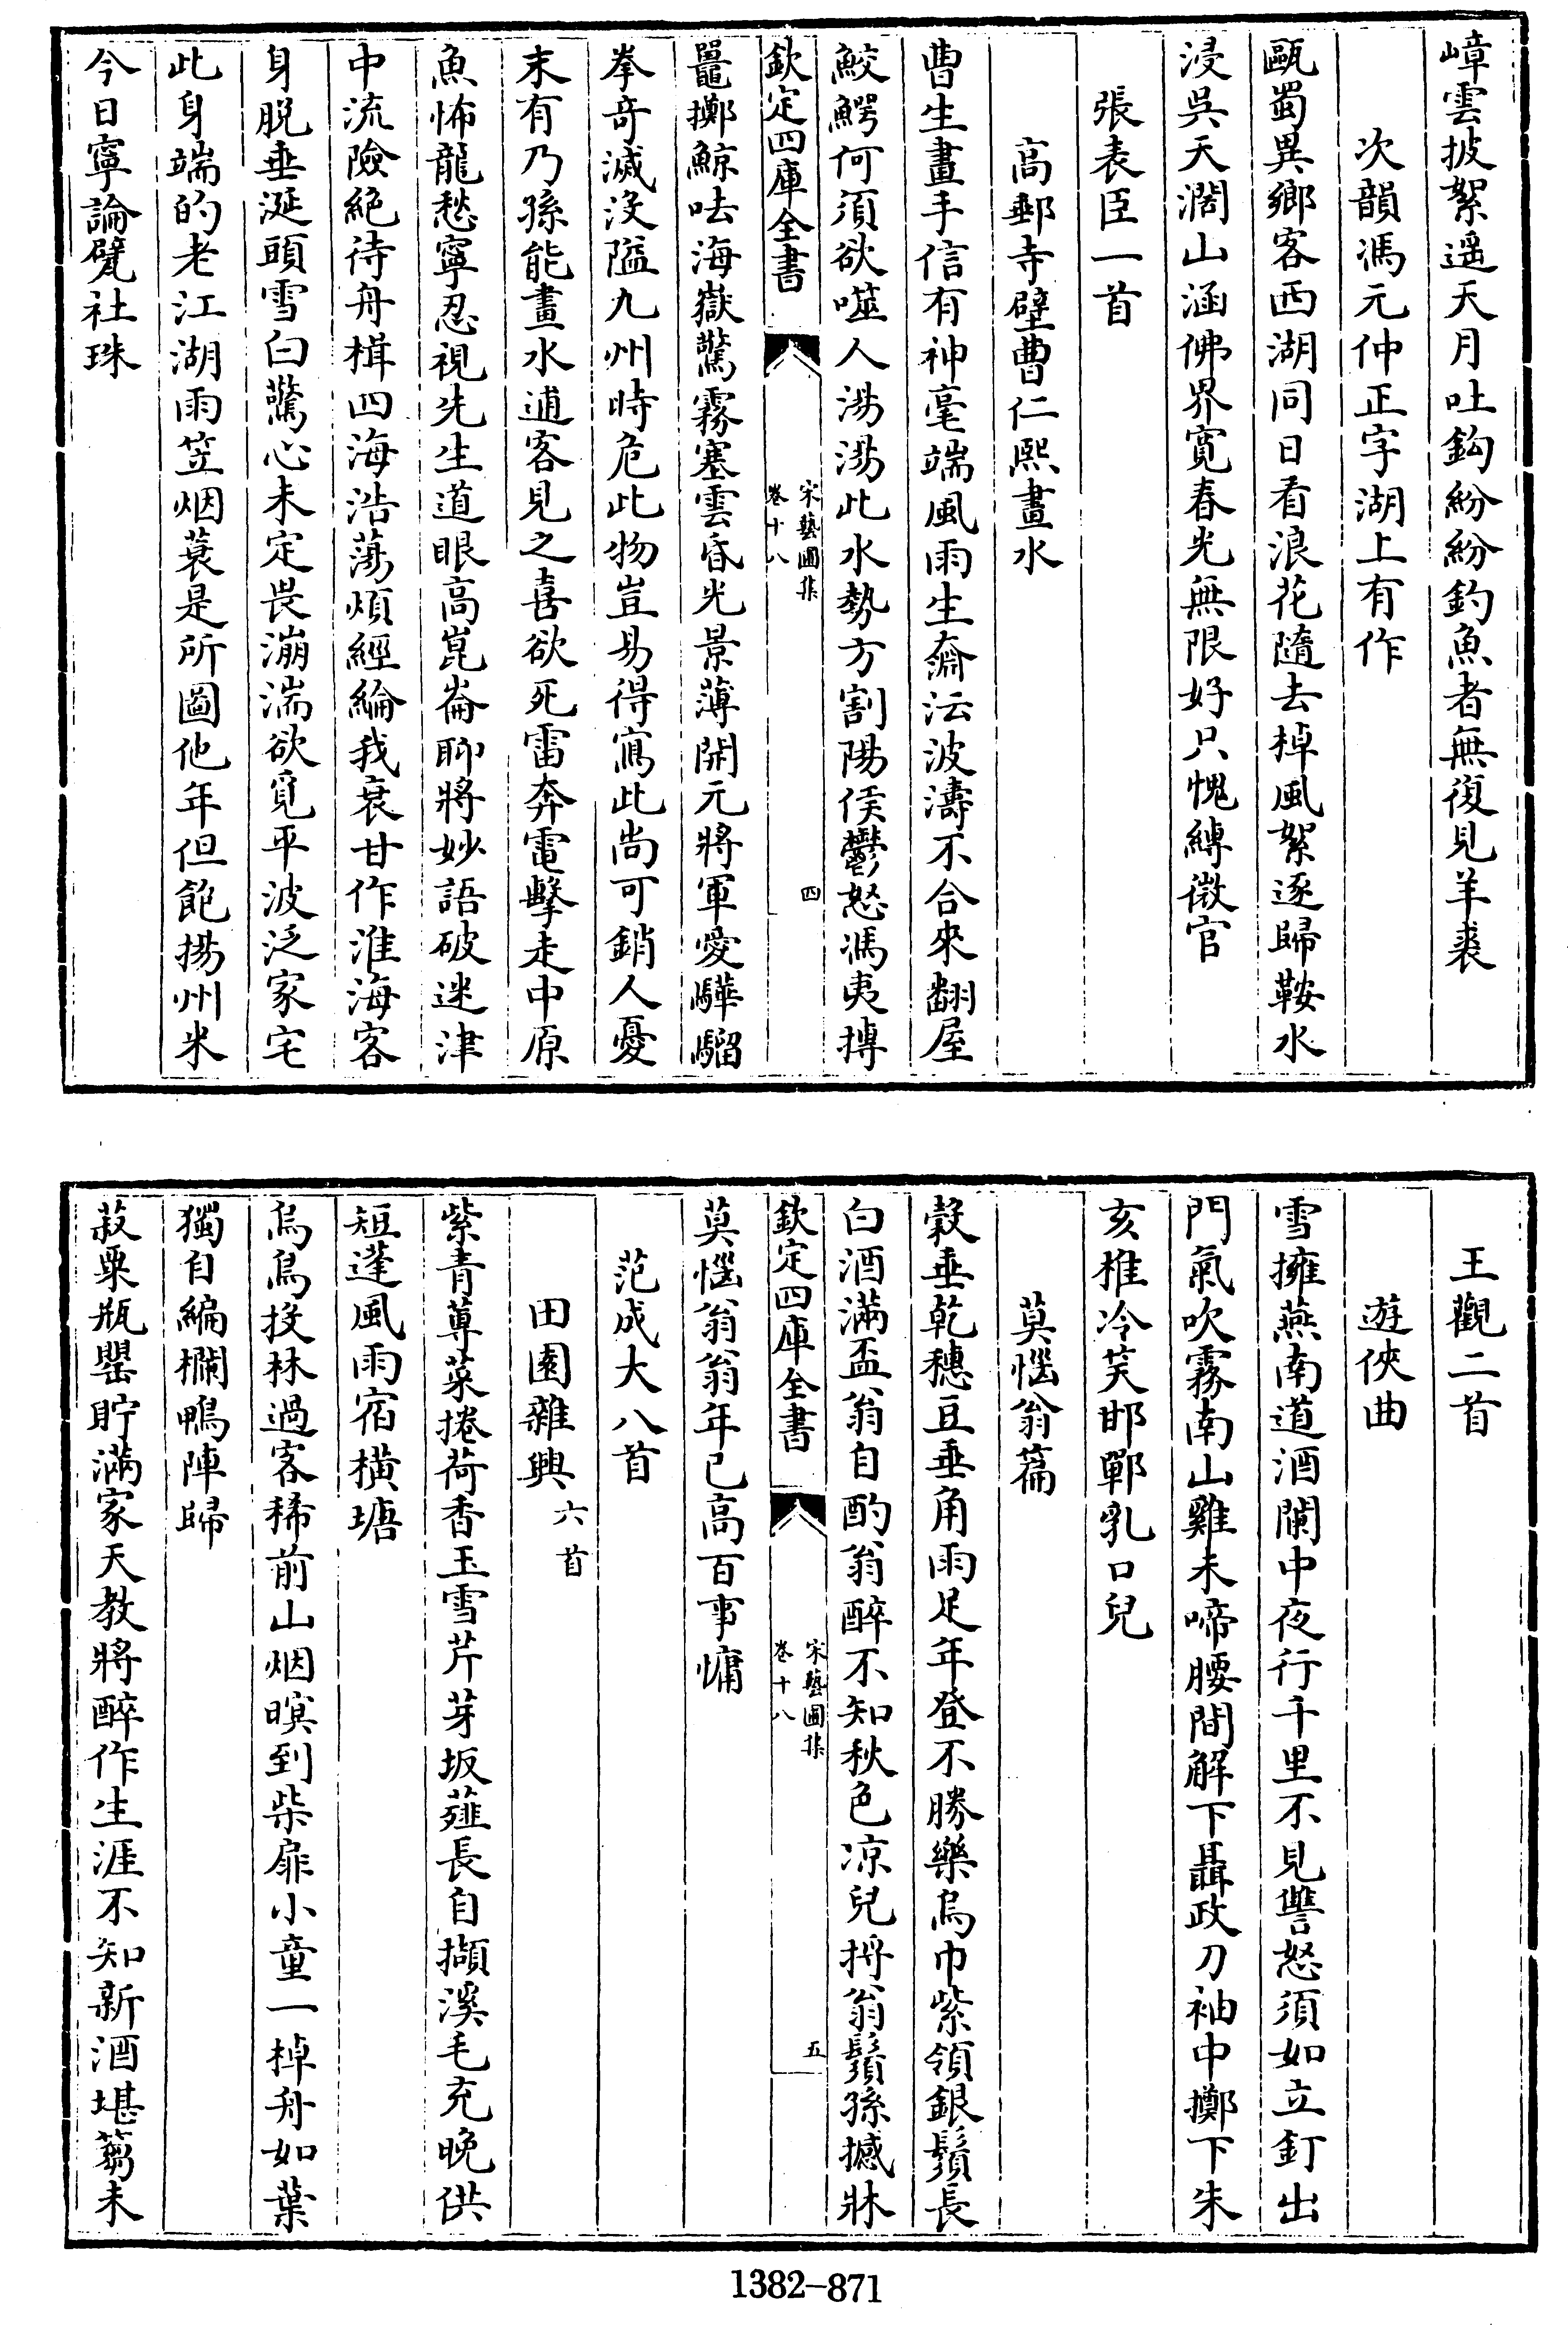 嶂雲披絮遥天月吐鈎紛紛釣魚者無復見羊裘
次韻馮元仲正字湖上有作
甌蜀異鄉客西湖同日看浪花隨去棹風絮逐歸鞍水
浸吳天濶山涵佛界寛春光無限好只愧縛微官
張表臣一首
高郵寺壁曹仁熙畫水
曹生畫手信有神毫端風雨生奫沄波濤不合來翻屋
鮫鰐何須欲噬人湯湯此水勢方割陽侯鬱怒馮夷摶
欽定四庫全書
宋藝圃集
卷十八
四
鼉擲鯨呿海嶽驚霧塞雲昏光景薄開元將軍愛驊騮
拳奇滅沒隘九州時危此物豈易得寫此尚可銷人憂
末有乃孫能畫水逋客見之喜欲死雷奔電擊走中原
魚怖龍愁寧忍視先生道眼高崑崙聊將妙語破迷津
中流險絶待舟楫四海浩蕩煩經綸我衰甘作淮海客
身脱垂涎頭雪白驚心未定畏漰湍欲覓平波泛家宅
此身端的老江湖雨笠烟蓑是所圖他年但飽揚州米
今日寧論甓社珠
王觀二首
遊俠曲
雪擁燕南道酒闌中夜行千里不見讐怒須如立釘出
門氣吹霧南山雞未啼腰間解下聶政刀袖中擲下朱
亥椎冷笑邯鄲乳口兒
莫惱翁篇
穀垂乾穗豆垂角雨足年登不勝樂烏巾紫領銀鬚長
白酒滿盃翁自酌翁醉不知秋色凉兒捋翁鬚孫撼牀
欽定四庫全書
宋藝圃集
卷十八
五
莫惱翁翁年已高百事慵
范成大八首
田園雜興六首
紫青蓴菜捲荷香玉雪芹芽坂薤長自擷溪毛充晚供
短蓬風雨宿横塘
烏鳥投林過客稀前山烟暝到柴扉小童一棹舟如葉
獨自編欄鴨陣歸
菽粟瓶罌貯滿家天教將醉作生涯不知新酒堪蒭未